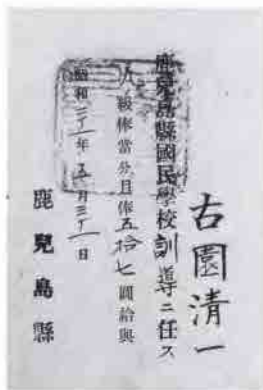 古園清一
鹿兒島縣國民學校訓導ニ任ス
八級俸當分月俸五拾七圓給與
昭和二十一年五月三十一日
鹿兒島縣